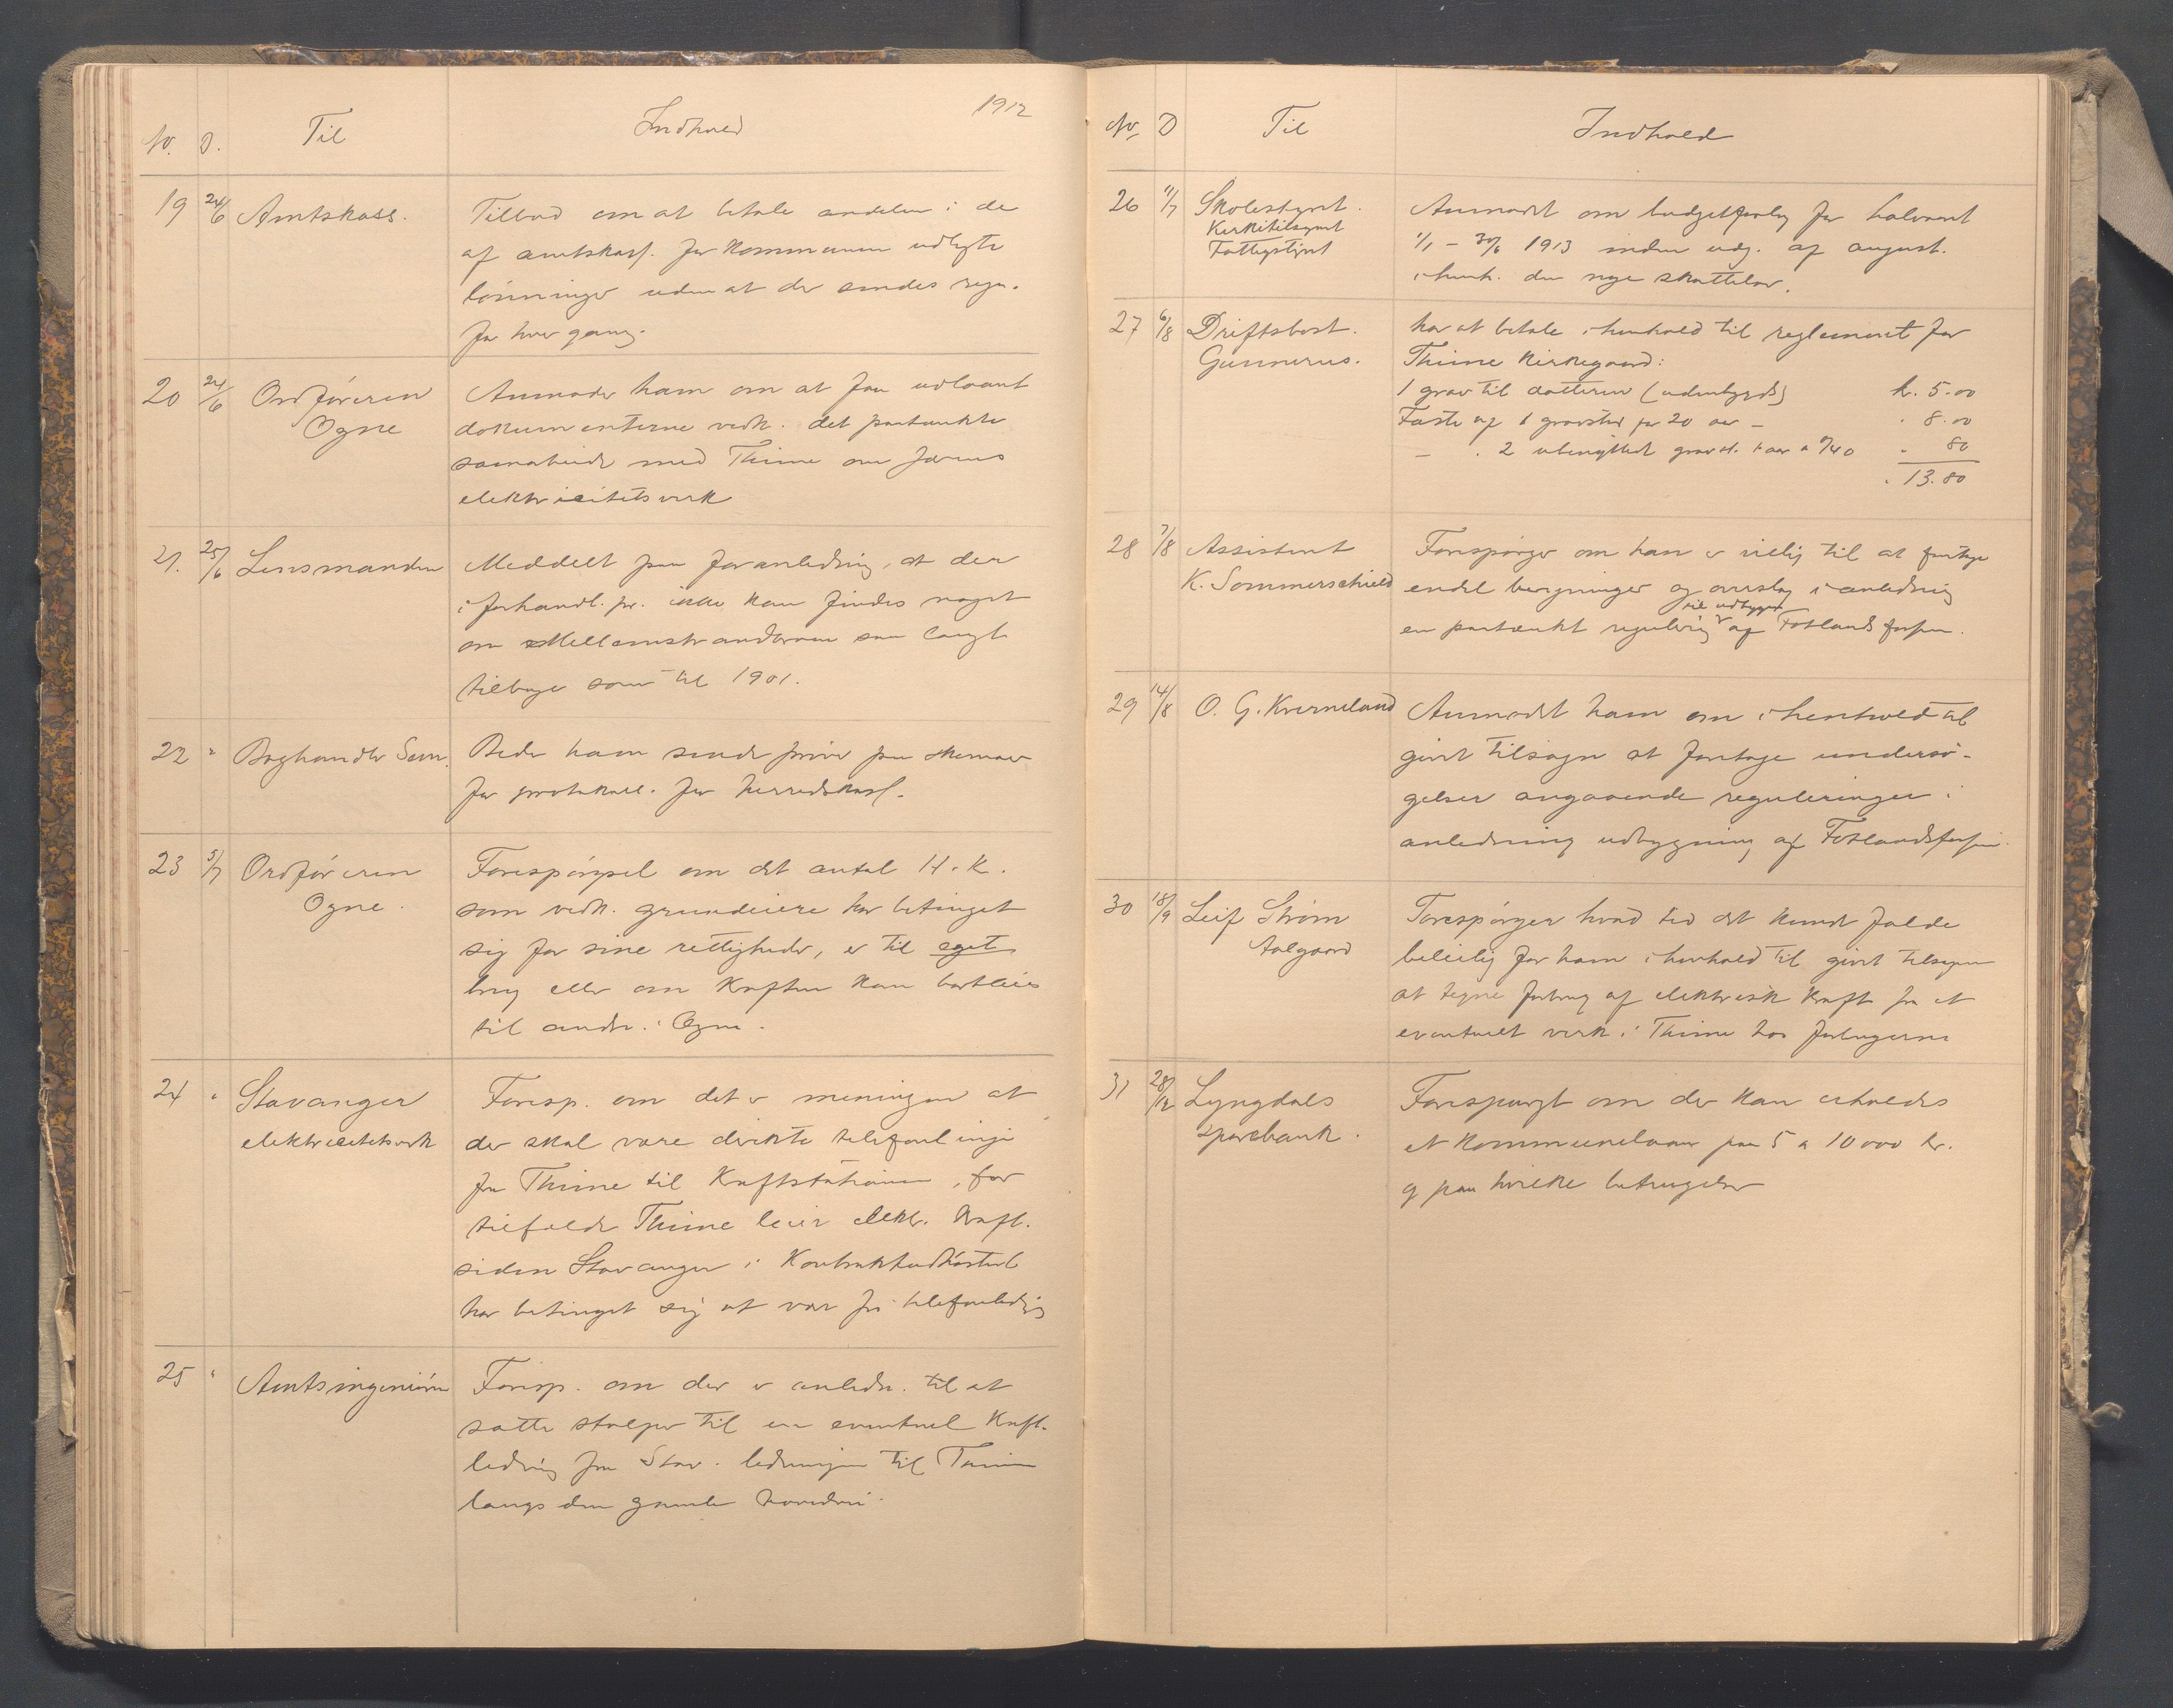 1912
No. D. Til Indhold
19 24/6 Amtskass. Tilbud om at betale andelen i de
af amtskass. for kommunen udlagte
lønninger uden at der sendes regn.
for hver gang.
20 24/6 Ordføreren Anmoder ham om at faa udlaant
Ogne dokumenterne vedk. det paatænkte
samarbeide med Thime om Jærens
elektricitetsverk
21. 25/6 Lensmanden Meddelt paa foranledning, at der
i forhandl. pr. ikke kan findes noget
om Mellemstrandveien saa langt
tilbage som til 1901.
22 " Boghandler Beder ham sende prøve paa skemaer
for protokoll. for herredskass.
23 5/7 Ordføreren Forespørgsel om det antal H.K.
Ogne. som vedk. grundeiere har betinget
sig for sine rettigheder, er til eget
brug eller om kraften kan bortleies
til andre i Ogne.
24 " Stavanger Foresp. om det er meningen at
elektricitetsverk der skal være direkte telefonlinje
fra Thime til Kraftstationen, for
tilfælde Thime leier elektr. kraft.
siden Stavanger i
har betinget sig at være fri telefonledng
25 " Amtsingeniøren Foresp. om der er anledn. til at
sætte stolper til en eventuel kraft-
ledning fra Stav. ledningen til Thime
langs den gamle hovedvei.
No. D Til Indhold
26 11/7 Skolestyret. Anmodet om budgetforslag for halvaaret
Kirketilsynet 1/1 - 30/6 1913 inden udg. af august.
Fattigstyret i henh. den nye skattelov.
27 6/8 Driftsbest. har at betale i henhold til reglement for
Gunnerus. Thime Kirkegaard:
1 grav til datteren (udenbygds) kr. 5.00
Fæste af 1 gravsted for 20 aar - " 8.00
- " 2 ubenyttede gravst. 1 aar a 0/40 " 80
" 13.80
28 7/8 Assistent Forespørger om han er villig til at foretage
K. Sommerschield endel beregninger og overslag i anledning
til udbygn
en paatænkt regulering af Fotlandsfossen.
29 14/8 O. G. Kverneland Anmodet ham om i henhold til
givet tilsagn at foretage undersø-
gelser angaaende reguleringer i
anledning udbygning af Fotlandsfossen.
30 18/9 Leif Strøm Forespørger hvad tid det kunde falde
Aalgaard beleilig for ham i henhold til givet tilsagn
at tegne forbrug af elektrisk kraft fra et
eventuelt verk i Thime hos forbrugerne
31 28/12 Lyngdals Forespurgt om der kan erholdes
sparebank. et kommunelaan paa 5 a 10000 kr.
og paa hvilke betingelser